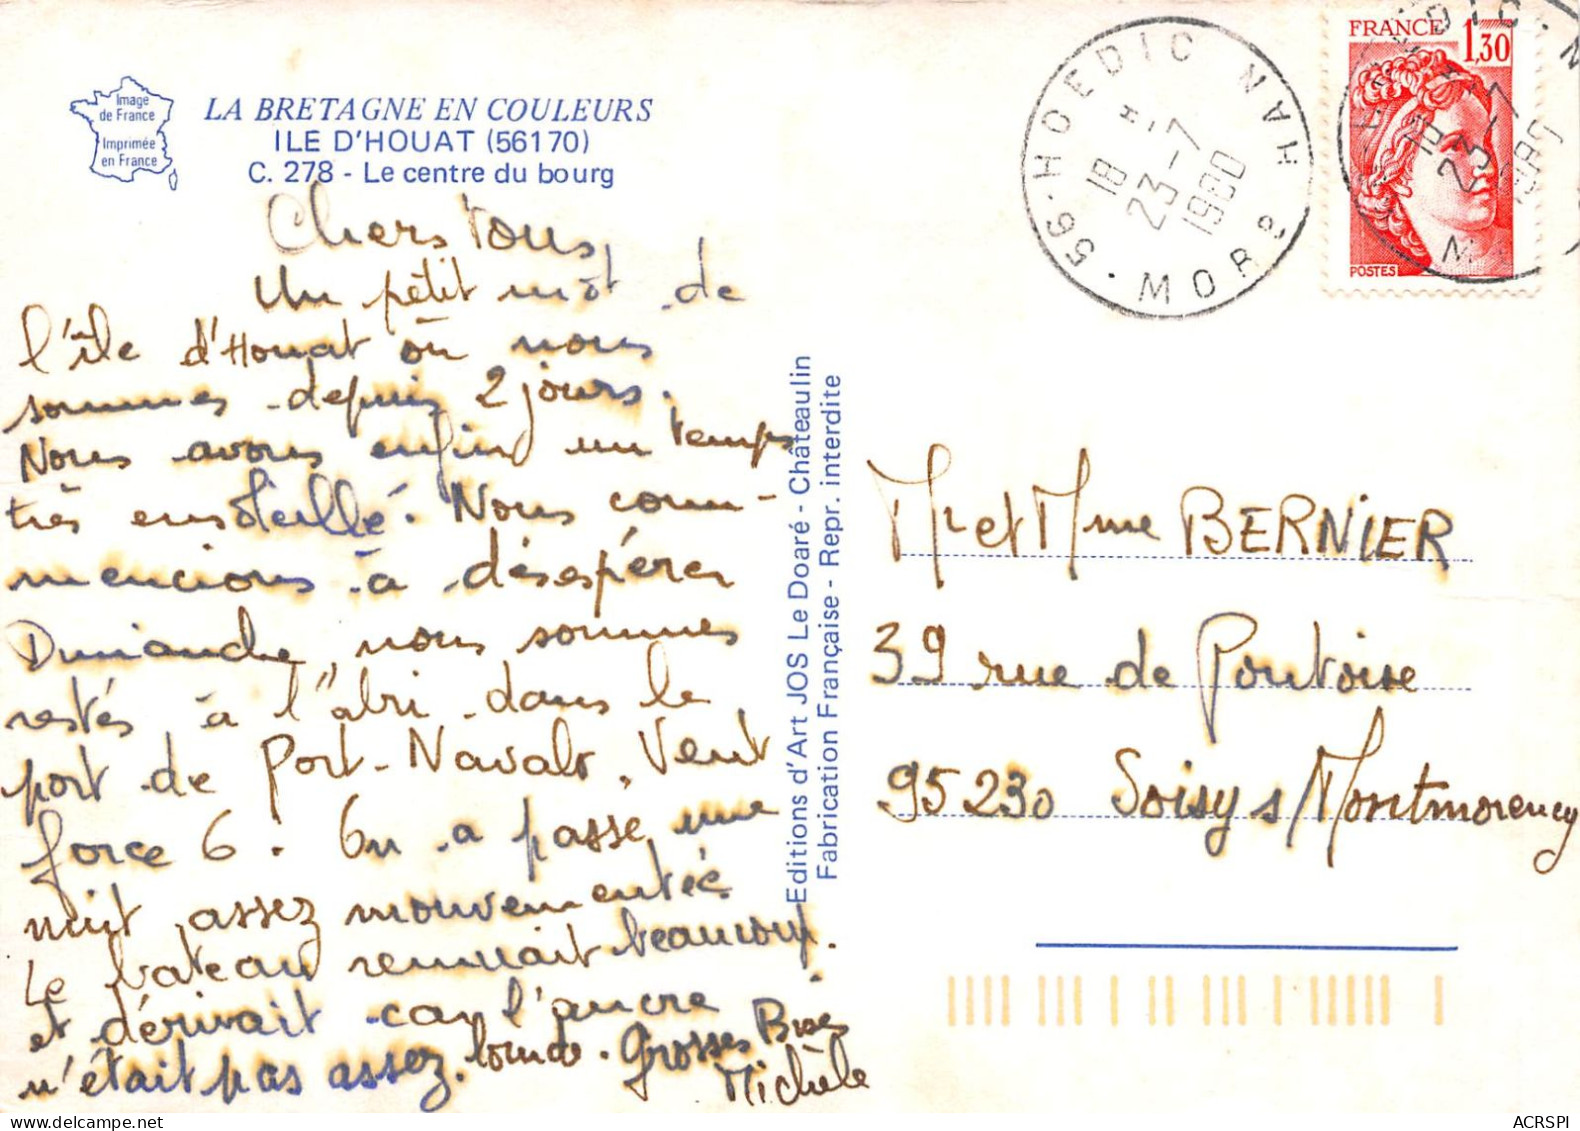 Image
de France
Imprimée
en France
LA BRETAGNE EN COULEURS
ILE D'HOUAT (56170)
C. 278 - Le centre du bourg
Chers tous,
Un petit mot de
l'île d'Houat où nous
sommes depuis 2 jours.
Nous avons enfin un temps
très ensoleillé. Nous com-
mencions à désespérer
Dimanche, nous sommes
restés à l'abri dans le
port de Port-Navalo. Vent
force 6. On a passé une
nuit assez mouvementée
Le bateau remuait beaucoup.
et dérivait car l'ancre
n'était pas assez lourde. Grosses Bises
Michèle
Editions d'Art JOS Le Doaré - Châteaulin
Fabrication Française - Repr. interdite
56·HOEDIC
18 H
23-7
1980
MORB
FRANCE 1,30
POSTES
23-7
Mr et Mme BERNIER
39 rue de Pontoise
95230 Soisy s/Montmorency
ACRSPI